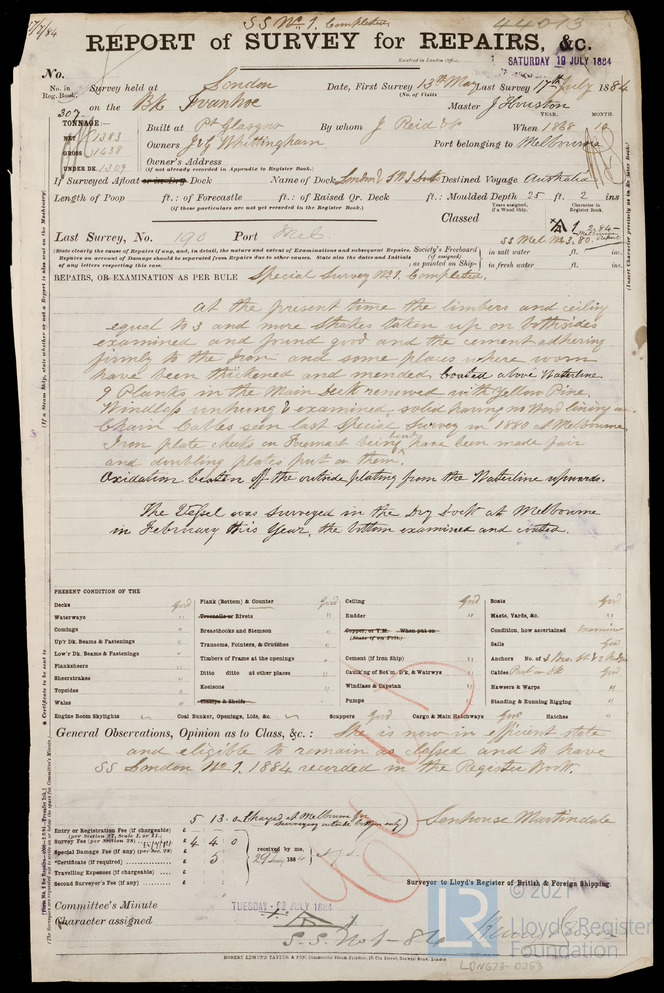 S.S. No. 1. Completed
44013
REPORT of SURVEY for REPAIRS, &c.
Received in London Office,
SATURDAY 19 JULY 1884
No.
No. in Reg. Book.
307
Survey held at London Date, First Survey 13th May Last Survey 17th July 1884
(No. of Visits
on the Bk Ivanhoe Master J Houston
TONNAGE:—
NET 1383
GROSS 1438
UNDER DK. 1309
YEAR. MONTH.
Built at Pt Glasgow By whom J. Reid & Co When 1868 10
Owners J & G Whittingham Port belonging to Melbourne
Owner's Address
(if not already recorded in Appendix to Register Book.)
If Surveyed Afloat or in Dry Dock Name of Dock London & S W I Docks Destined Voyage Australia
Length of Poop ft.: of Forecastle ft.: of Raised Qr. Deck ft.: Moulded Depth 25 ft. 2 ins
(if these particulars are not yet recorded in the Register Book.)
Years assigned, if a Wood Ship.
Character in Register Book.
Classed
SS Mel No 3. 80
Last Survey, No. 190 Port Mel.
(State clearly the cause of Repairs, if any, and, in detail, the nature and extent of Examinations and subsequent Repairs.
Repairs on account of Damage should be separated from Repairs due to other causes. State also the dates and Initials
of any letters respecting this case.)
Society's Freeboard (if assigned) as painted on Ship—
in salt water ft. ins
in fresh water ft.
REPAIRS, OR EXAMINATION AS PER RULE Special Survey No 1. Completed.
At the present time the limbers and ceiling
equal to 3 and more strakes taken up on both sides
examined and found good and the cement adhering
firmly to the Iron and some places where worn
have been thickened and mended, coated above Waterline
9 Planks in the Main Deck renewed with Yellow Pine
Windlass unhung & examined, solid having no Wood lining on
Chain Cables seen last Special Survey in 1880 at Melbourne
Iron plate cheeks on Foremast being bent have been made fair
and doubling plates put on them.
Oxidation beaten off the outside plating from the Waterline upwards.
The Vessel was surveyed in the Dry Dock at Melbourne
in February this Year, the bottom examined and coated.
PRESENT CONDITION OF THE
Decks Good
Waterways "
Comings "
Up'r Dk. Beams & Fastenings "
Low'r Dk. Beams & Fastenings "
Planksheers "
Sheerstrakes "
Topsides "
Wales "
Engine Room Skylights "
Plank (Bottom) & Counter Good
Treenails or Rivets "
Breasthooks and Stemson "
Transoms, Pointers, & Crutches "
Timbers of Frame at the openings "
Ditto ditto at other places "
Keelsons "
Clamps & Shelfs
Coal Bunker, Openings, Lids, &c. "
Ceiling Good
Rudder "
Copper, or Y.M. When put on
(State if on Felt.)
Cement (if Iron Ship) "
Caulk'ng of Bot'm, D'k, & Watrwys "
Windlass & Capstan "
Pumps "
Scuppers Good Cargo & Main Hatchways Good Hatches "
Boats Good
Masts, Yards, &c. "
Condition, how ascertained Examined
Sails Good
Anchors No. of
Cables Part on Dk
Hawsers & Warps Good
Standing & Running Rigging "
General Observations, Opinion as to Class, &c.: She is now in efficient state
and eligible to remain as classed and to have
SS London No. 1. 1884 recorded in the Register Book.
5 13. 0 Charged at Melbourne for
Surveying outside bottom only)
Senhouse Martindale
Entry or Registration Fee (if chargeable)
(per Section 27, Scale I, or II.)
Survey Fee (per Section 28) £ 4 4 0
Special Damage Fee (if any) (per Sec. 28) £
*Certificate (if required) £ 5
Travelling Expenses (if chargeable) £
Second Surveyor's Fee (if any) £
received by me,
29 July 1884
Surveyor to Lloyd's Register of British & Foreign Shipping.
Committee's Minute TUESDAY 22 JULY 1884
Character assigned
S.S. No 1 - 84
© 2021
LR
Lloyd's Register
Foundation
LDN673-0253
ROBERT EDMUND TAYLOR & SON, Commercial Steam Printers, 19, Old Street, Goswell Road, London.